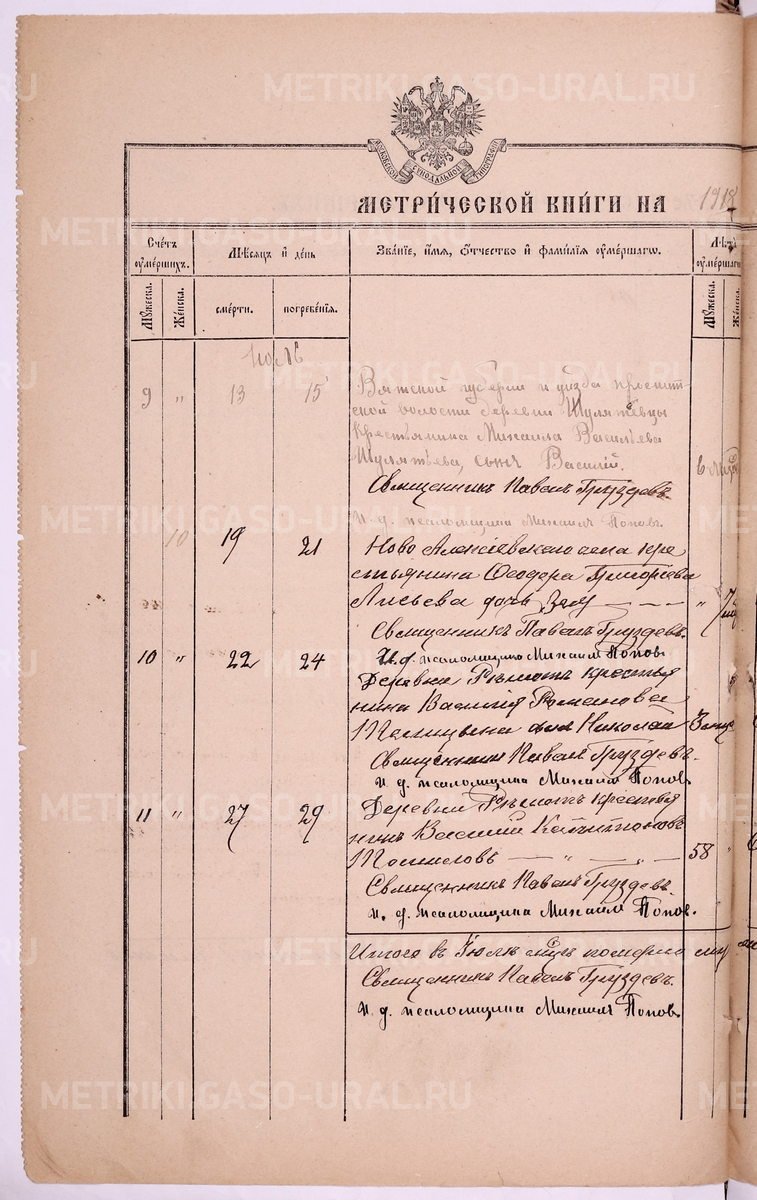 МОСКОВСКОЙ СѴНОДАЛЬНОЙ ТИПОГРАФІИ
МЕТРИ́ЧЕСКОЙ КНИ́ГИ НА 1918
Счетъ ᲂу҆мершихъ.
Мѣсяцъ и҆ день
Зва́нїе, и҆́мя, ѻ҆́тчество и҆ фами́лїя ᲂу҆ме́ршагѡ.
Лѣта ᲂу҆мершагѡ
Мꙋжеска.
Женска.
смерти.
погребенїя.
Мꙋжеска.
Женска.
Іюль
9 " 13 15 Вятской губерніи и уѣзда
ской волости деревни Шулятевцы
Крестьянина Михаила Васильева
Шулятьева, сынъ Василій. 6
Священникъ Павелъ Груздевъ.
И. д. псаломщика Михаилъ Поповъ.
10 19 21 Ново Алексіевскаго села кре
стьянина Ѳеодора Григоріева
Лисьева дочь "
Священникъ Павелъ Груздевъ.
10 " 22 24 И. д. псаломщика Михаилъ Поповъ
Деревни крестья
нина Василія Романова
сынъ Николай 3
Священникъ Павелъ Груздевъ.
и. д. псаломщика Михаилъ Поповъ
11 " 27 29 Деревни крестья
нинъ Василій Капитоновъ
— " — " — 58 "
Священникъ Павелъ Груздевъ.
и. д. псаломщика Михаилъ Попов.
Итого в Іюлѣ померло
Священникъ Павелъ Груздевъ.
и. д. псаломщика Михаилъ Поповъ
METRIKI.GASO-URAL.RU